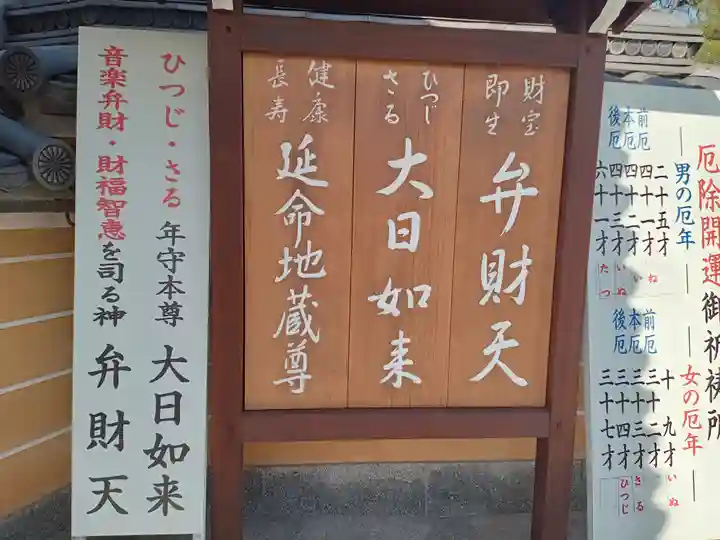 厄除開運御祈祷所
男の厄年
前厄
本厄
後厄
二十五才
四十一才
四十二才
四十三才
六十一才
ね
いぬ
たつ
女の厄年
前厄
本厄
後厄
十九才
三十二才
三十三才
三十四才
三十七才
いぬ
さる
ひつじ
財宝
即生
弁財天
ひつじ
さる
大日如来
健康
長寿
延命地蔵尊
ひつじ・さる年守本尊 大日如来
音楽弁財・財福智恵を司る神 弁財天